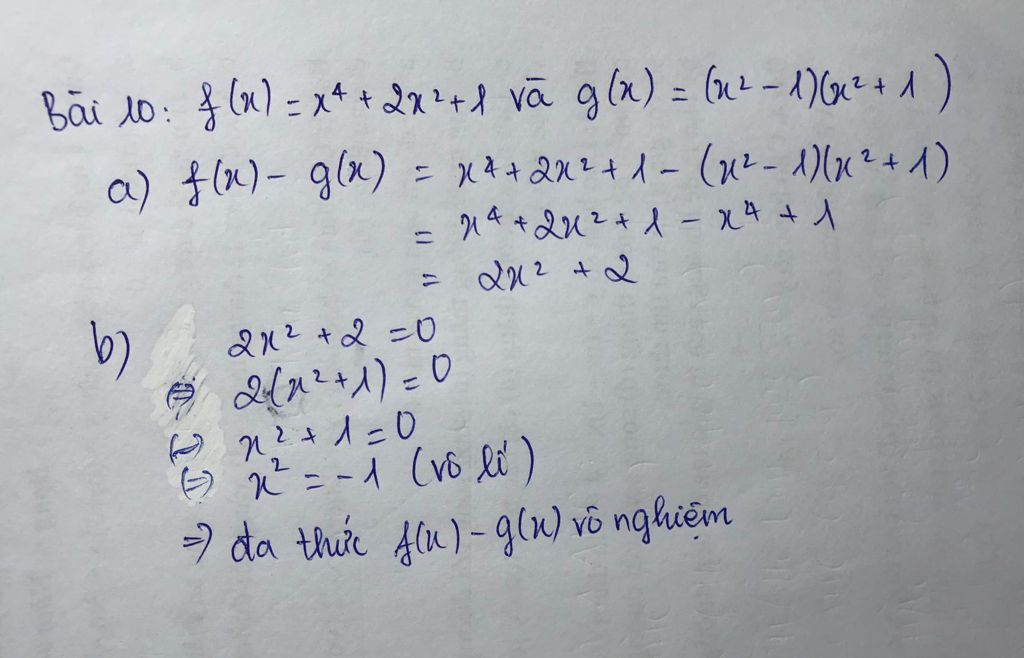 Bài 10: f(x) = x⁴ + 2x² + 1 và g(x) = (x² - 1)(x² + 1)
a) f(x) - g(x) = x⁴ + 2x² + 1 - (x² - 1)(x² + 1)
= x⁴ + 2x² + 1 - x⁴ + 1
= 2x² + 2
b) 2x² + 2 = 0
⇔ 2(x² + 1) = 0
⇔ x² + 1 = 0
⇔ x² = -1 (vô lí)
⇒ đa thức f(x) - g(x) vô nghiệm